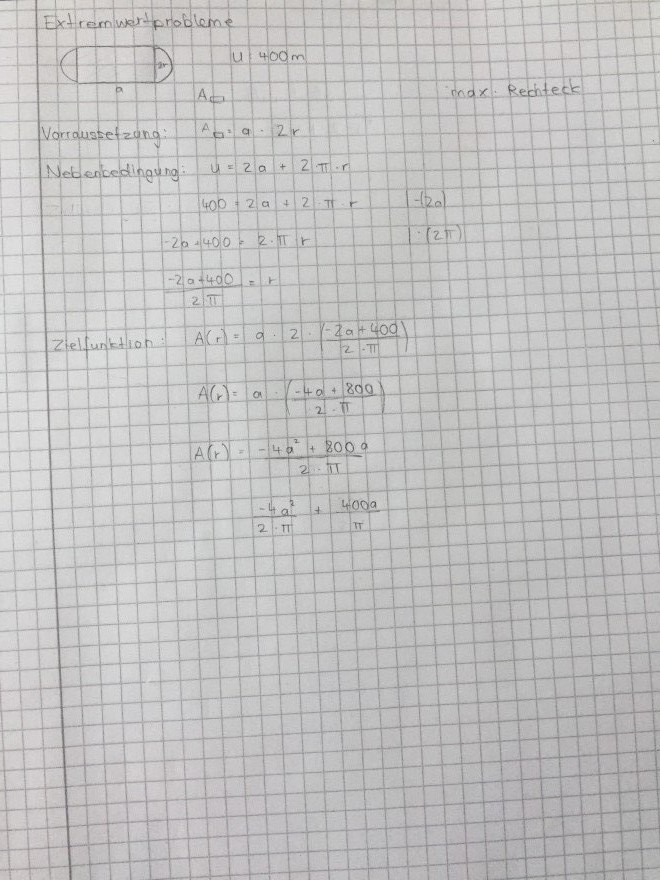 Extremwertprobleme
2r
U = 400m
a
A▭
max. Rechteck
Vorrausbetzung: A▭ = a · 2r
Nebenbedingung: U = 2a + 2 π · r
400 = 2a + 2 · π · r |-(2a)
-2a + 400 = 2 · π r | : (2π)
(-2a+400)/(2π) = r
Zielfunktion: A(r) = a · 2 · ((-2a + 400)/(2 · π))
A(r) = a · ((-4a + 800)/(2 · π))
A(r) = (-4a² + 800a)/(2 · π)
(-4a²)/(2 · π) + (400a)/π